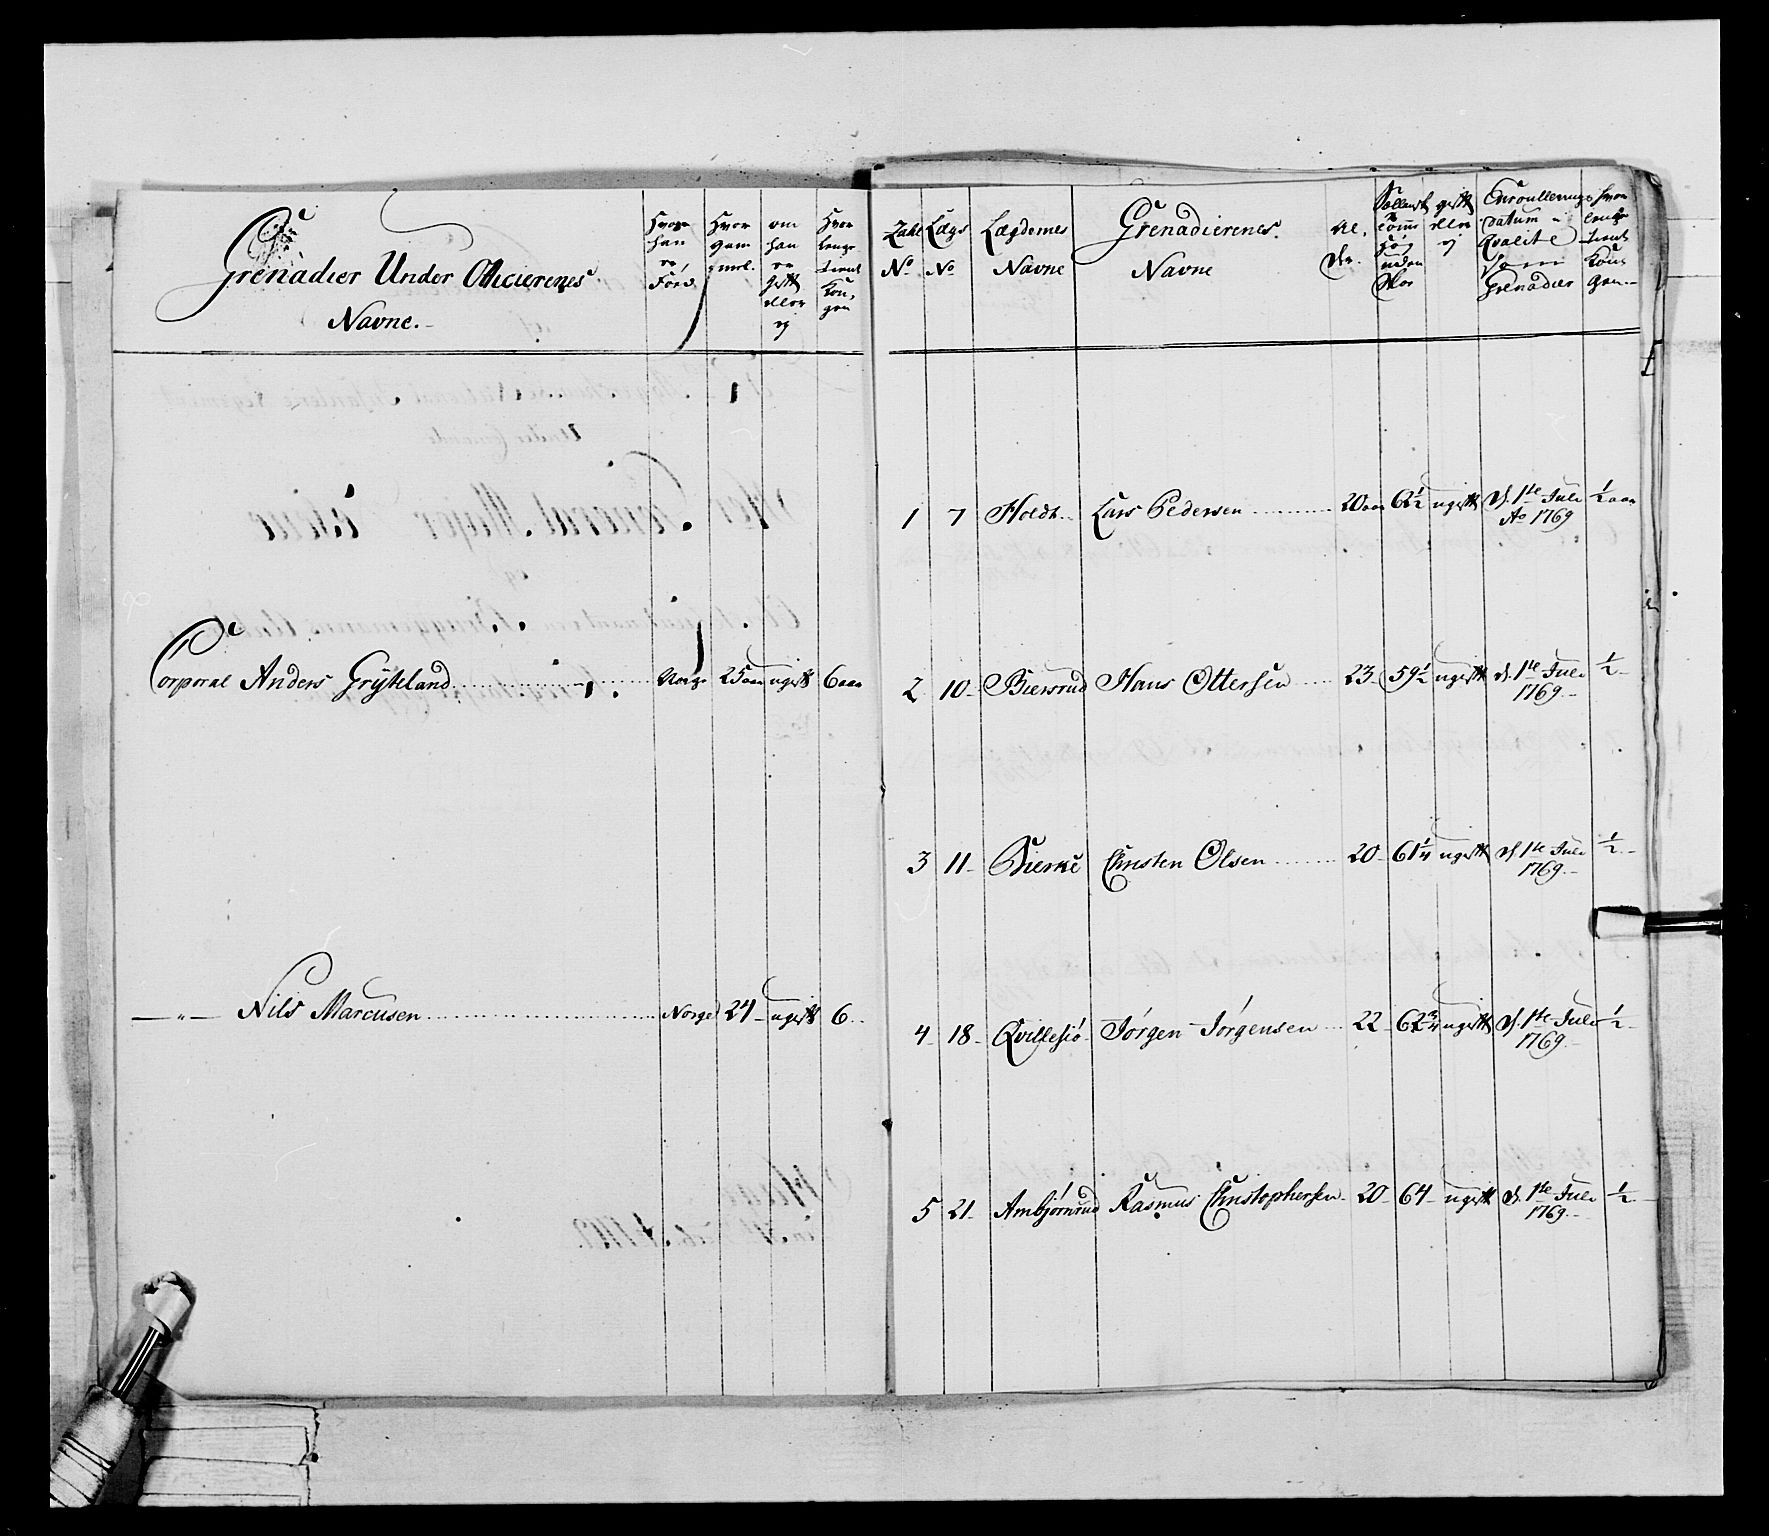 Grenadier Under Officierenes
Navne.
Hvor
han
er
Fød
Hvor
gam
mel.
om
han
er
gift
eller
ej
Hvor
lenge
tient
Kon,
gen
Zahl
No
Lægs
No
Lægdernes
Navne
Grenadierenes
Navne
Al,
der.
uden
Skoe
gift
eller
ej
Enroullerings
datum
Qvalité
som
Grenadier
Hvor
lenge
tient
Kon
gen
1 7 Holdt Lars Pedersen 20 aar 62 1/2 ugift d. 1te Julii 1/2 aar
Ao 1769
Corporal Anders Grÿtteland Norge 25 aar ugift 6 aar
2 10 Biersrud Hans Ottersen 23 59 1/2 ugift d. 1te Julii 1/2
1769
3 11 Bierke Christen Olsen 20 61 1/4 ugift d. 1te Julii 1/2
1769
— " — Nils Marcusen Norge 24 ugift 6
4 18 Qvillesiø Jørgen Jørgensen 22 62 3/4 ugift d. 1te Julii 1/2
1769
5 21 Ambjørnrud Rasmus Christophersen 20 64 ugift d. 1te Julii 1/2
1769